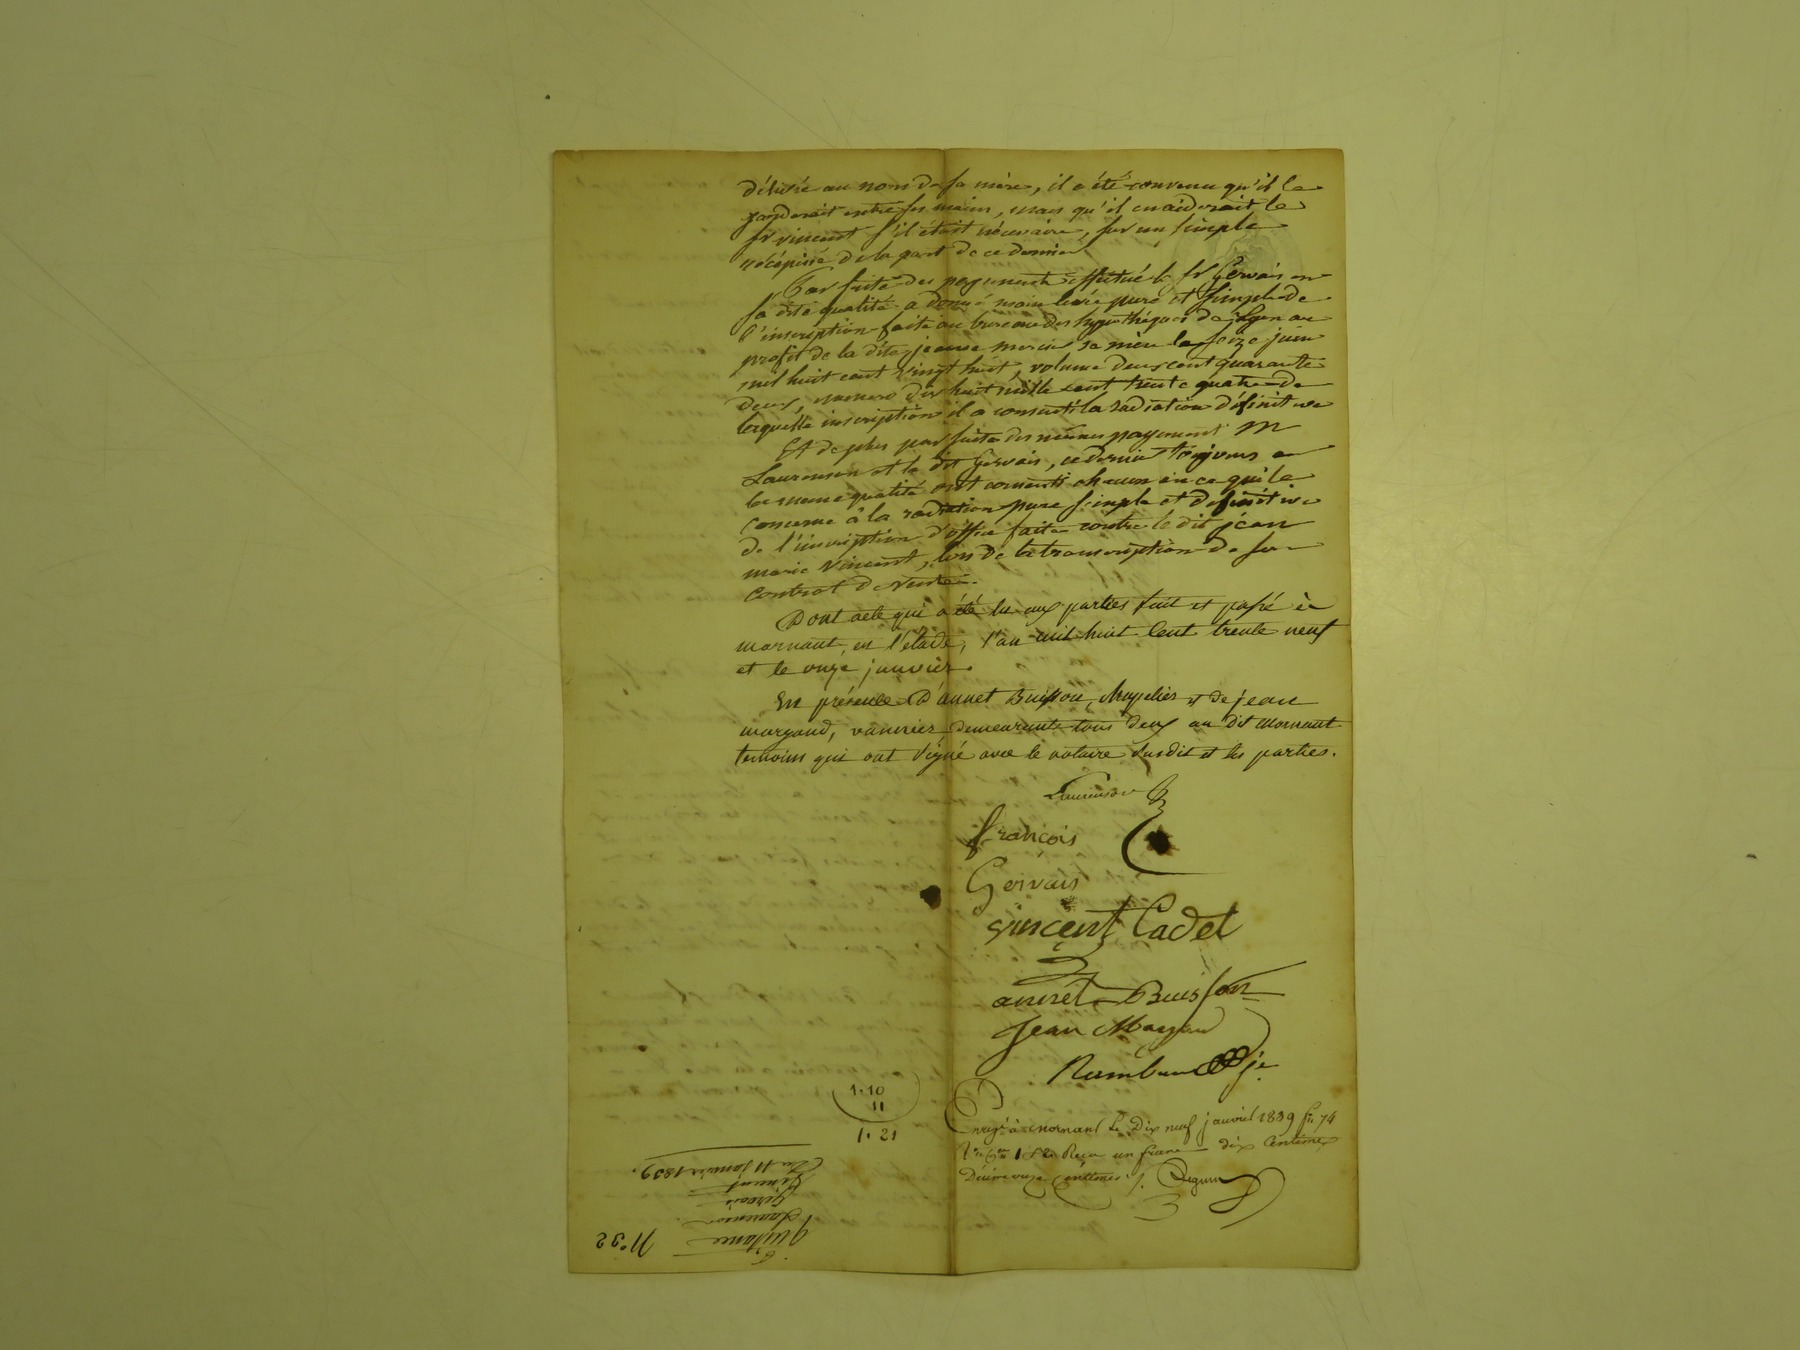 délivré au nom de sa mère, il a été convenu qu'il la
garderait entre ses mains, mais qu'il en aiderait le
sr vincent s'il était nécessaire, sur un simple
récépissé de la part de ce dernier
Par suite des payements effectués le sr Gervais en
sa dite qualité a donné main levée pure et simple de
l'inscription faite au bureau des hypothèques de Lyon au
profit de la dite jeanne mercier sa mère le seize juin
mil huit cent vingt huit, volume deux cent quarante
deux, numero dix huit mille cent trente quatre de
laquelle inscription il a consenti la radiation définitive
Et de plus par suite des mêmes payement M
Laurenson et le dit Gervais, ce dernier toujours en
la meme qualité ont consenti chacun en ce qui le
concerne à la radiation pure simple et définitive
de l'inscription d'office faite contre le dit jean
marie vincent, lors de la transcription de son
contrat de vente.
Dont acte qui a été lu aux parties fait et passé à
mornant, en l'étude, l'an mil huit cent trente neuf
et le onze janvier.
En présence d'annet Buisson, chapelier et de jean
margand, vannier, demeurants tous deux au dit mornant
temoins qui ont signé avec le notaire susdit et les parties.
Laurenson
françois
Gervais
vincent Cadet
annet Buisson
Jean Margand
Enregé à mornant le Dix neuf janvier 1839 fo 74
Reçu un franc dix centimes
Décime onze centimes
1.10
11
1.21
N° 32
quittance
Laurenson
Gervais
Vincent
Du 11 janvier 1839.